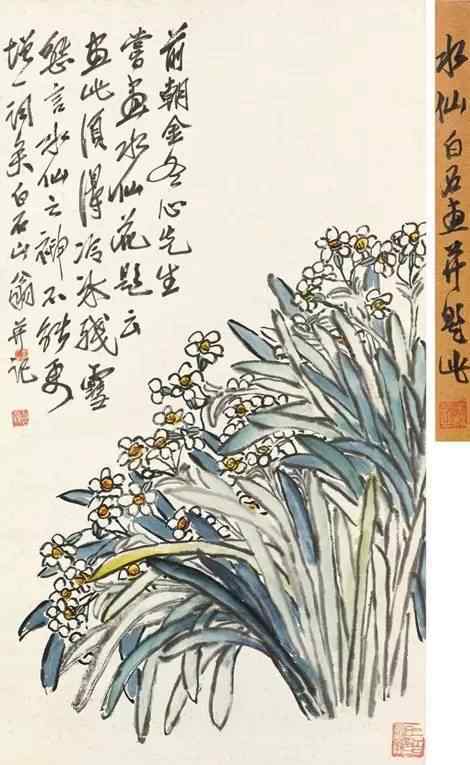 前朝金冬心先生
嘗畫水仙花題云
畫此須得冷冰殘雪
態言水仙之神不能更
增一詞矣白石山翁并記
水仙白石畫并題此